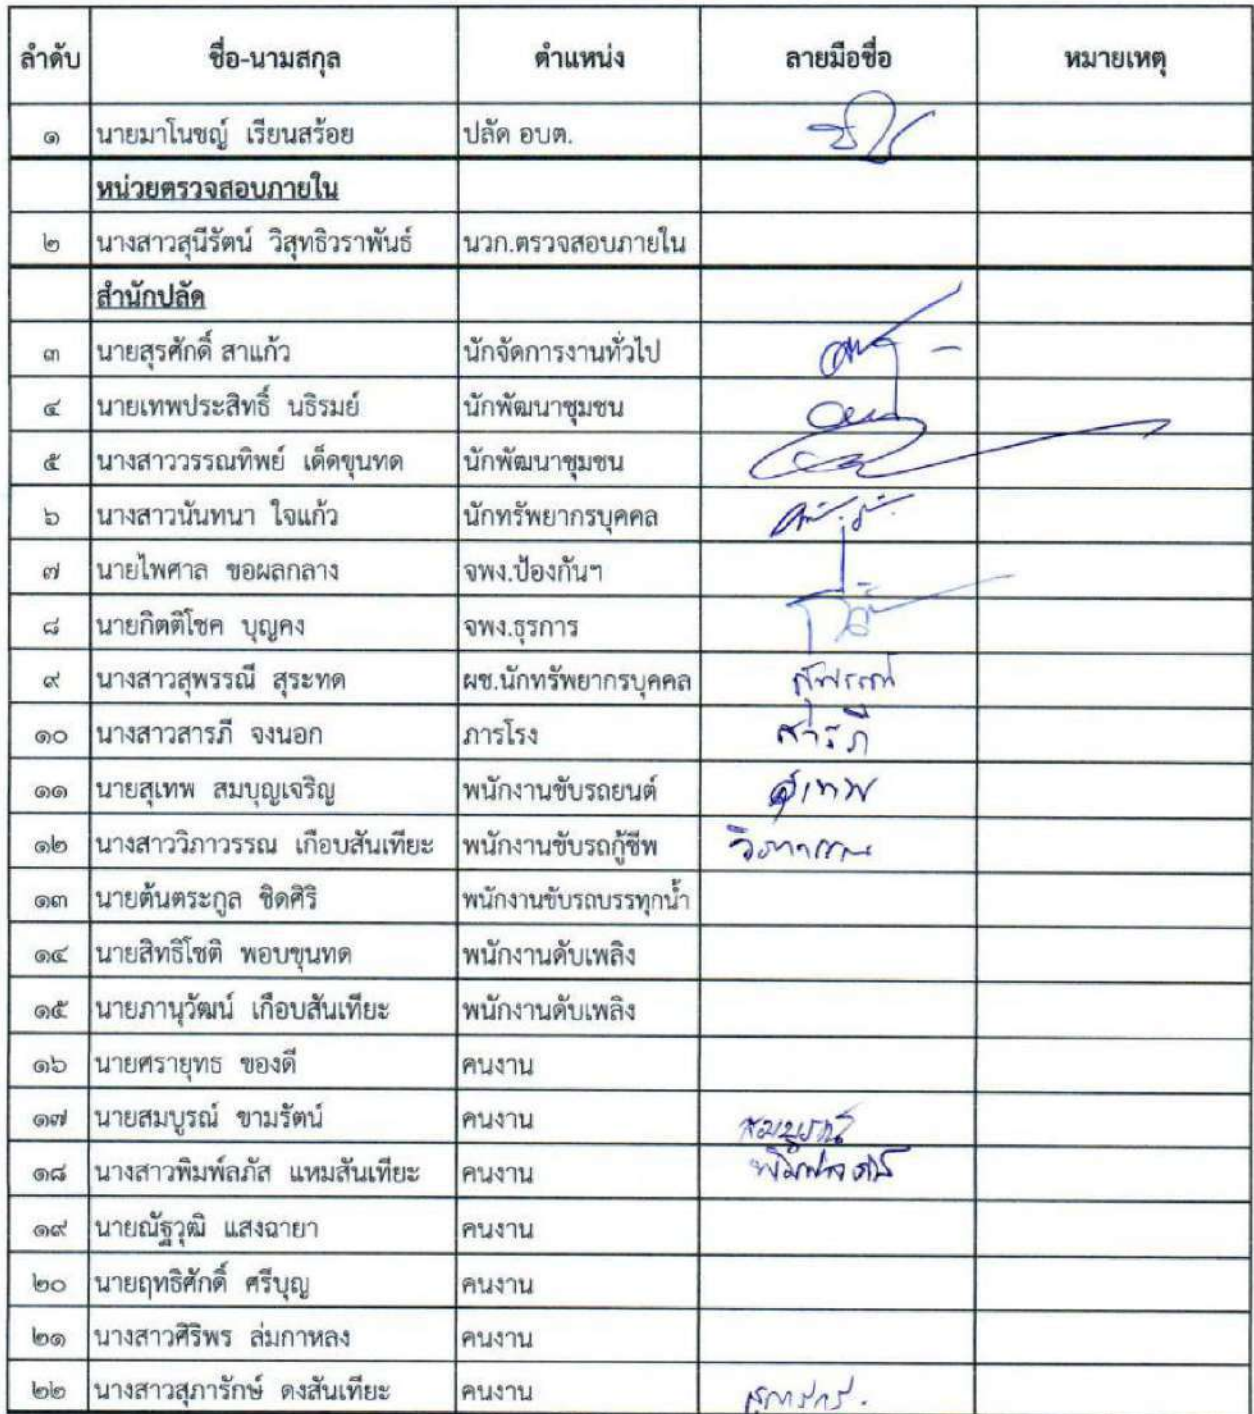 ลำดับ ชื่อ-นามสกุล ตำแหน่ง ลายมือชื่อ หมายเหตุ
๑ นายมาโนชญ์ เรียนสร้อย ปลัด อบต.
หน่วยตรวจสอบภายใน
๒ นางสาวสุนีรัตน์ วิสุทธิวราพันธ์ นวก.ตรวจสอบภายใน
สำนักปลัด
๓ นายสุรศักดิ์ สาแก้ว นักจัดการงานทั่วไป
๔ นายเทพประสิทธิ์ นธิรมย์ นักพัฒนาชุมชน
๕ นางสาววรรณทิพย์ เด็ดขุนทด นักพัฒนาชุมชน
๖ นางสาวนันทนา ใจแก้ว นักทรัพยากรบุคคล
๗ นายไพศาล ขอผลกลาง จพง.ป้องกันฯ
๘ นายกิตติโชค บุญคง จพง.ธุรการ
๙ นางสาวสุพรรณี สุระทด ผช.นักทรัพยากรบุคคล
๑๐ นางสาวสารภี จงนอก ภารโรง สารภี
๑๑ นายสุเทพ สมบุญเจริญ พนักงานขับรถยนต์ สุเทพ
๑๒ นางสาววิภาวรรณ เกือบสันเทียะ พนักงานขับรถกู้ชีพ วิภาวรรณ
๑๓ นายต้นตระกูล ชิดศิริ พนักงานขับรถบรรทุกน้ำ
๑๔ นายสิทธิโชติ พอบขุนทด พนักงานดับเพลิง
๑๕ นายภานุวัฒน์ เกือบสันเทียะ พนักงานดับเพลิง
๑๖ นายศรายุทธ ของดี คนงาน
๑๗ นายสมบูรณ์ ขามรัตน์ คนงาน สมบูรณ์
๑๘ นางสาวพิมพ์ลภัส แหมสันเทียะ คนงาน
๑๙ นายณัฐวุฒิ แสงฉายา คนงาน
๒๐ นายฤทธิศักดิ์ ศรีบุญ คนงาน
๒๑ นางสาวศิริพร ล่มกาหลง คนงาน
๒๒ นางสาวสุภารักษ์ ดงสันเทียะ คนงาน